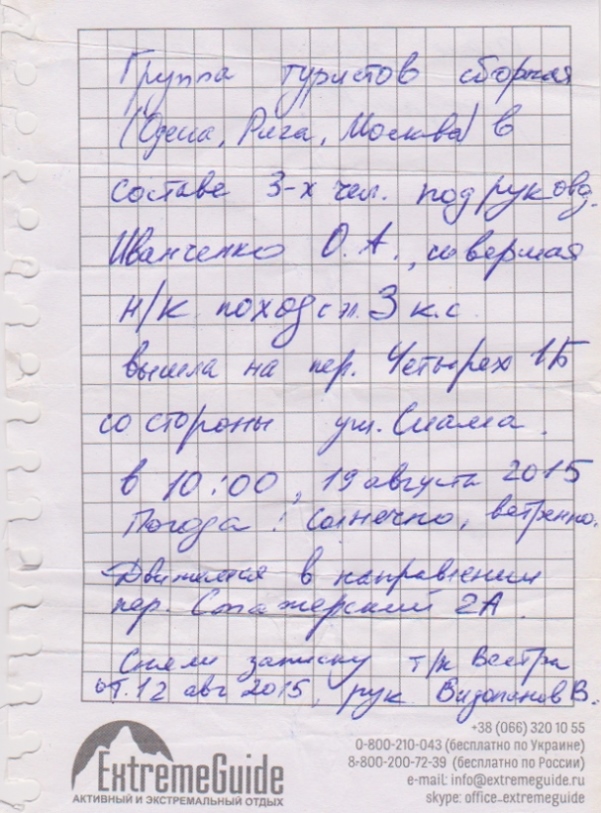 Группа туристов сборная
(Одесса, Рига, Москва) в
составе 3-х чел. под руковод.
Иванченко О.А., совершая
н/к поход с эл. 3 к.с.
вышла на пер. Четырех 1Б
со стороны ущ. Сиама.
в 10:00, 19 августа 2015
Погода: солнечно, ветренно.
Движимся в направлении
пер. Стажерский 2А.
Сняли записку т/к Вестра
от 12 авг 2015, рук. В.
+38 (066) 320 10 55
0-800-210-043 (бесплатно по Украине)
8-800-200-72-39 (бесплатно по России)
e-mail: info@extremeguide.ru
skype: office_extremeguide
ExtremeGuide
АКТИВНЫЙ И ЭКСТРЕМАЛЬНЫЙ ОТДЫХ